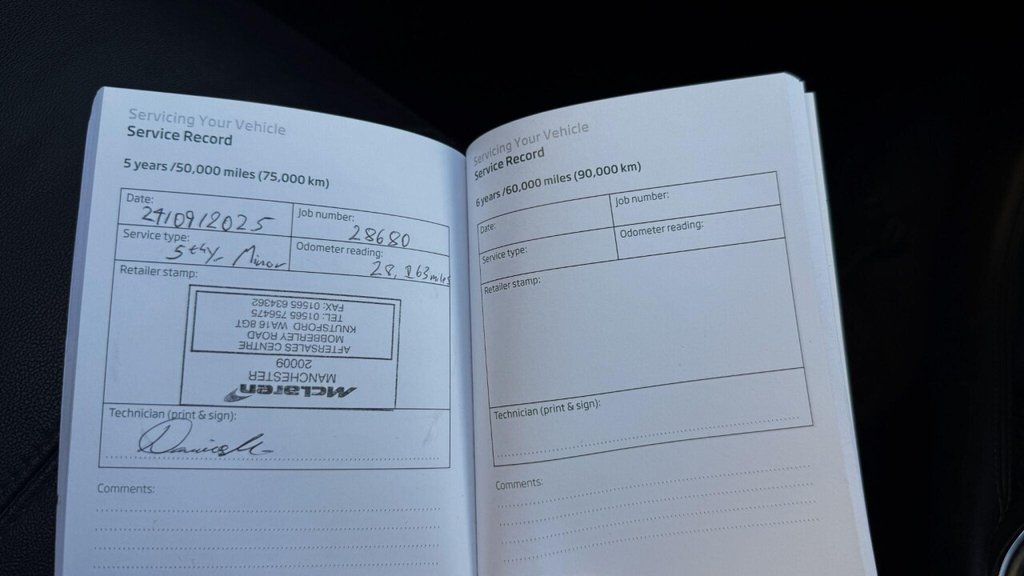 Servicing Your Vehicle
Service Record
5 years /50,000 miles (75,000 km)
Date:
24/09/2025
Job number:
28680
Service type:
5th Yr Minor
Odometer reading:
28, 163 miles
Retailer stamp:
McLaren
MANCHESTER
20009
AFTERSALES CENTRE
MOBBERLEY ROAD
KNUTSFORD WA16 8GT
TEL: 01565 756475
FAX: 01565 634362
Technician (print & sign):
Comments:
Servicing Your Vehicle
Service Record
6 years/60,000 miles (90,000 km)
Date:
Job number:
Service type:
Odometer reading:
Retailer stamp:
Technician (print & sign):
Comments: